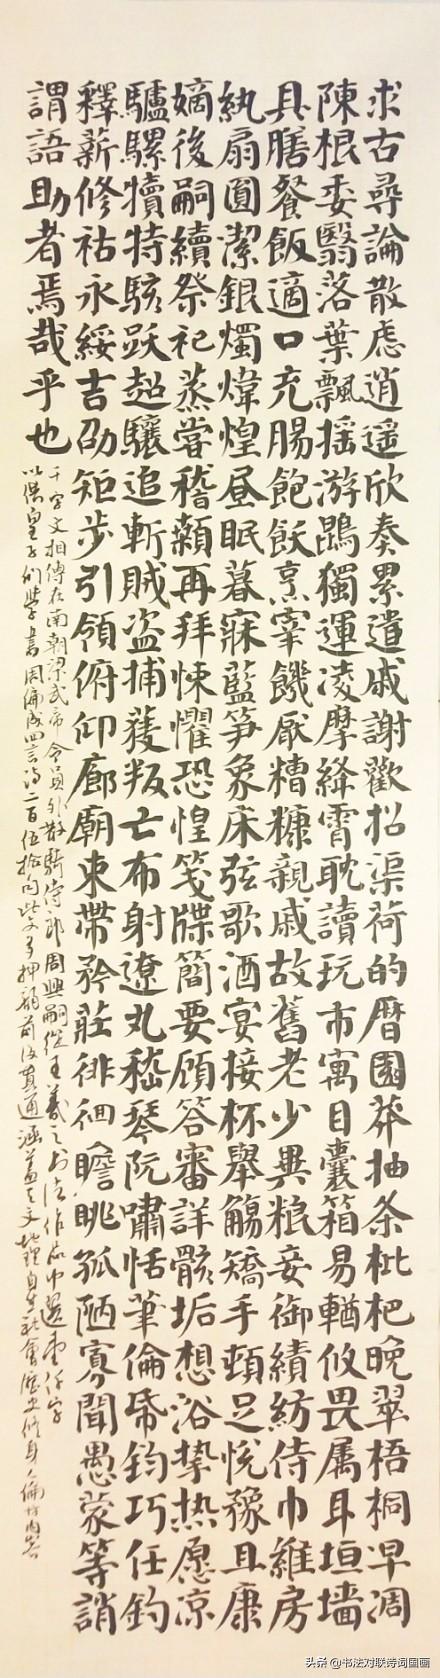 求古尋論散慮逍遥欣奏累遣戚謝歡招渠荷的曆園莽抽条枇杷晚翠梧桐早凋
陳根委翳落葉飄摇游鵾獨運凌摩絳霄耽讀玩市寓目囊箱易輶攸畏属耳垣墙
具膳餐飯適口充腸飽飫烹宰饑厭糟糠親戚故舊老少異粮妾御績紡侍巾維房
紈扇圓潔銀燭煒煌昼眠暮寐藍笋象床弦歌酒宴接杯舉觴矯手頓足悅豫且康
嫡後嗣續祭祀蒸嘗稽顙再拜悚懼恐惶箋牒簡要顧答審詳骸垢想浴執热愿凉
驢騾犢特駭跃超驤追斬賊盗捕獲叛亡布射遼丸嵇琴阮嘯恬筆倫帋鈞巧任釣
釋薪修祜永綏吉劭矩步引領俯仰廊廟束帶矜莊徘徊瞻眺孤陋寡聞愚蒙等誚
謂語助者焉哉乎也
千字文相傳在南朝梁武帝令員外散騎侍郎周興嗣從王羲之书法作品中選壹仟字
以供皇子们學書周编成四言诗二百伍拾句此文押韻前后貫通涵蓋天文地理自然社會歷史修身人倫
头条 @书法对联诗词国画